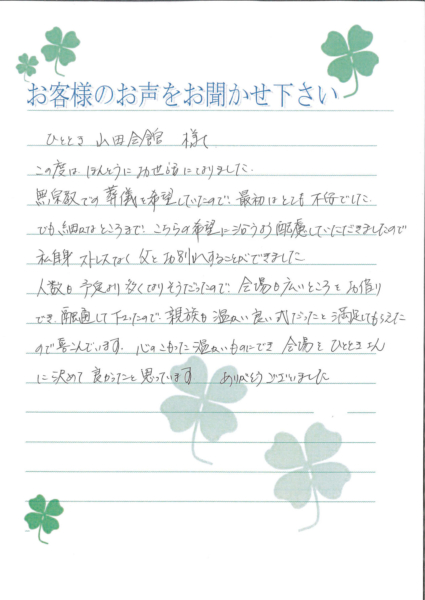 お客様のお声をお聞かせ下さい
ひととき 山田会館 様へ
この度は ほんとうに お世話になりました.
無宗教での 葬儀を希望していたので、最初はとても 不安でした.
でも、細かなところまで、こちらの希望に沿うよう配慮していただきましたので
私自身 ストレスなく 父と お別れすることができました
人数も 予定より 多くなりそうだったので、会場も広いところを お借り
でき、融通して下さったので、親族も 温かい 良い 式だったと 満足してもらえた
ので喜んでいます. 心のこもった 温かいものにでき 会場を ひとときさん
に 決めて 良かったと 思っています ありがとうございました